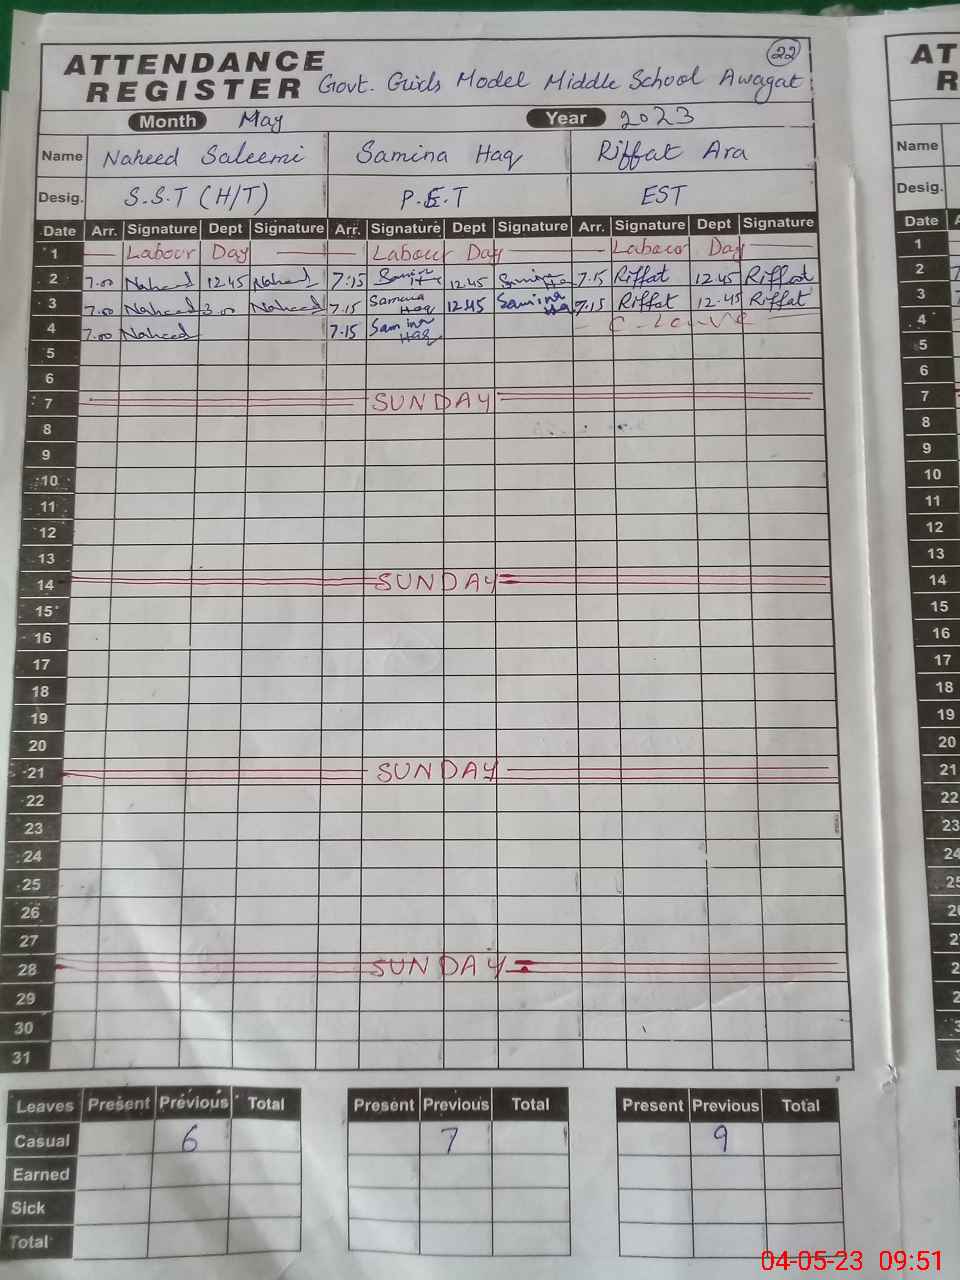 ATTENDANCE
REGISTER Govt. Girls Model Middle School Awagat 22
Month May Year 2023
Name Naheed Saleemi Samina Haq Riffat Ara
Desig. S.S.T (H/T) P.E.T EST
Date Arr. Signature Dept Signature Arr. Signature Dept Signature Arr. Signature Dept Signature
1 Labour Day Labour Day Labour Day
2 7.00 Naheed 12.45 Naheed 7:15 12.45 7.15 Riffat 12.45 Riffat
3 7.00 Naheed 3.00 Naheed 7.15 Samina Haq 12.45 Samina Haq 7.15 Riffat 12-45 Riffat
4 7.00 Naheed 7.15 Samina Haq C-Leave
5
6
7 SUNDAY
8
9
10
11
12
13
14 SUNDAY
15
16
17
18
19
20
21 SUNDAY
22
23
24
25
26
27
28 SUNDAY
29
30
31
Leaves Present Previous Total Present Previous Total Present Previous Total
Casual 6 7 9
Earned
Sick
Total
AT
R
Name
Desig.
Date
1
2
3
4
5
6
7
8
9
10
11
12
13
14
15
16
17
18
19
20
21
22
23
24
04-05-23 09:51